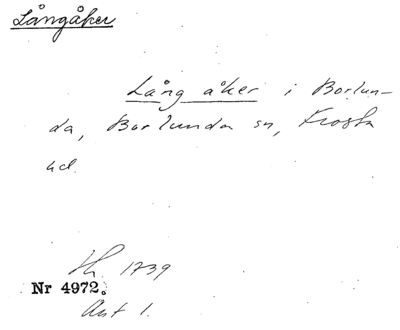 Långåker
Lång åker i Borlun-
da, Borlunda sn, Frosta
hd.
Hh 1739
Nr 4972.
Ant 1.